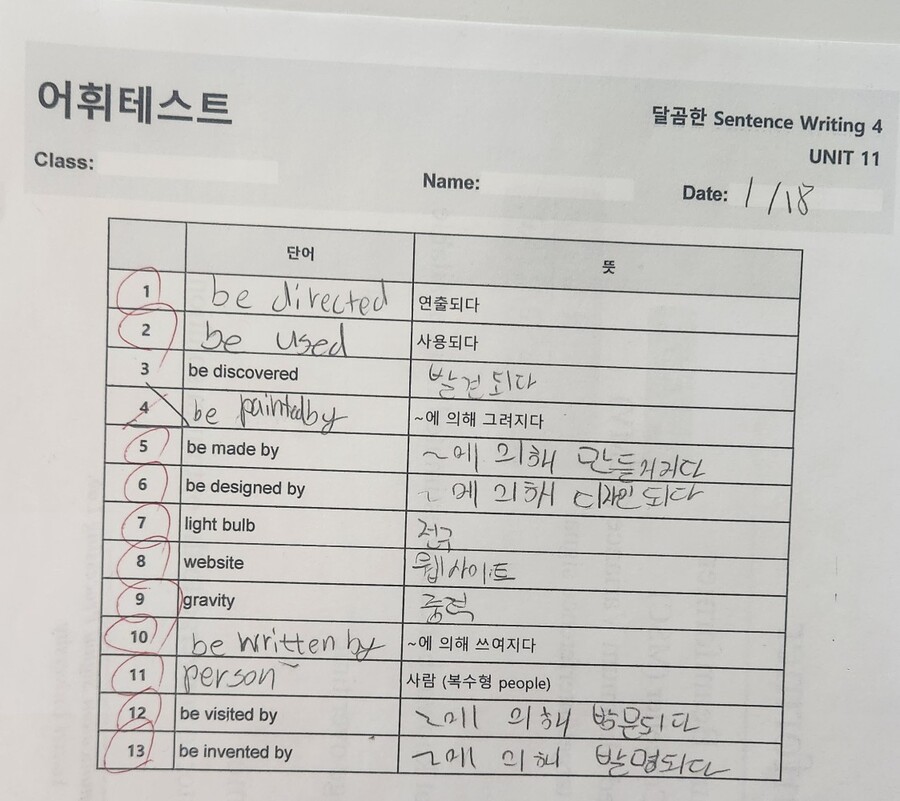 어휘테스트
달곰한 Sentence Writing 4
UNIT 11
Class:
Name:
Date: 1/18
단어 뜻
1 be directed 연출되다
2 be used 사용되다
3 be discovered 발견되다
4 be painted by ~에 의해 그려지다
5 be made by ~에 의해 만들어지다
6 be designed by ~에 의해 디자인되다
7 light bulb 전구
8 website 웹사이트
9 gravity 중력
10 be written by ~에 의해 쓰여지다
11 person 사람 (복수형 people)
12 be visited by ~에 의해 방문되다
13 be invented by ~에 의해 발명되다